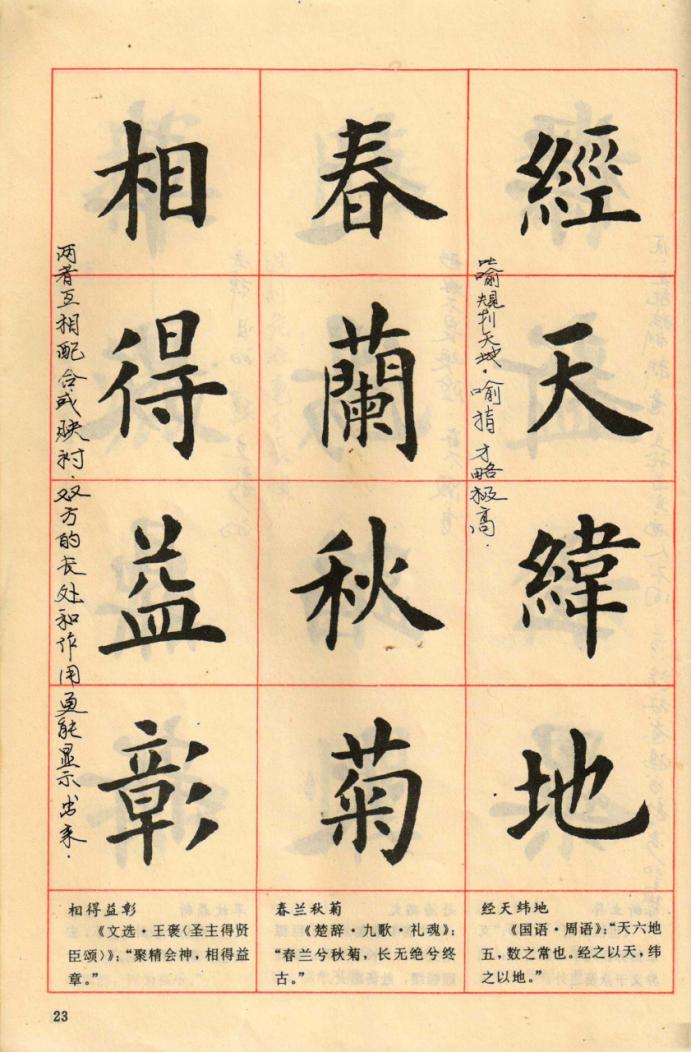 經天緯地
比喻规划天地.喻指才略极高.
春蘭秋菊
相得益彰
两者互相配合或映衬.双方的长处和作用更能显示出来.
经天纬地
《国语·周语》:“天六地
五,数之常也。经之以天,纬
之以地。”
春兰秋菊
《楚辞·九歌·礼魂》:
“春兰兮秋菊,长无绝兮终
古。”
相得益彰
《文选·王褒〈圣主得贤
臣颂〉》:“聚精会神,相得益
章。”
23